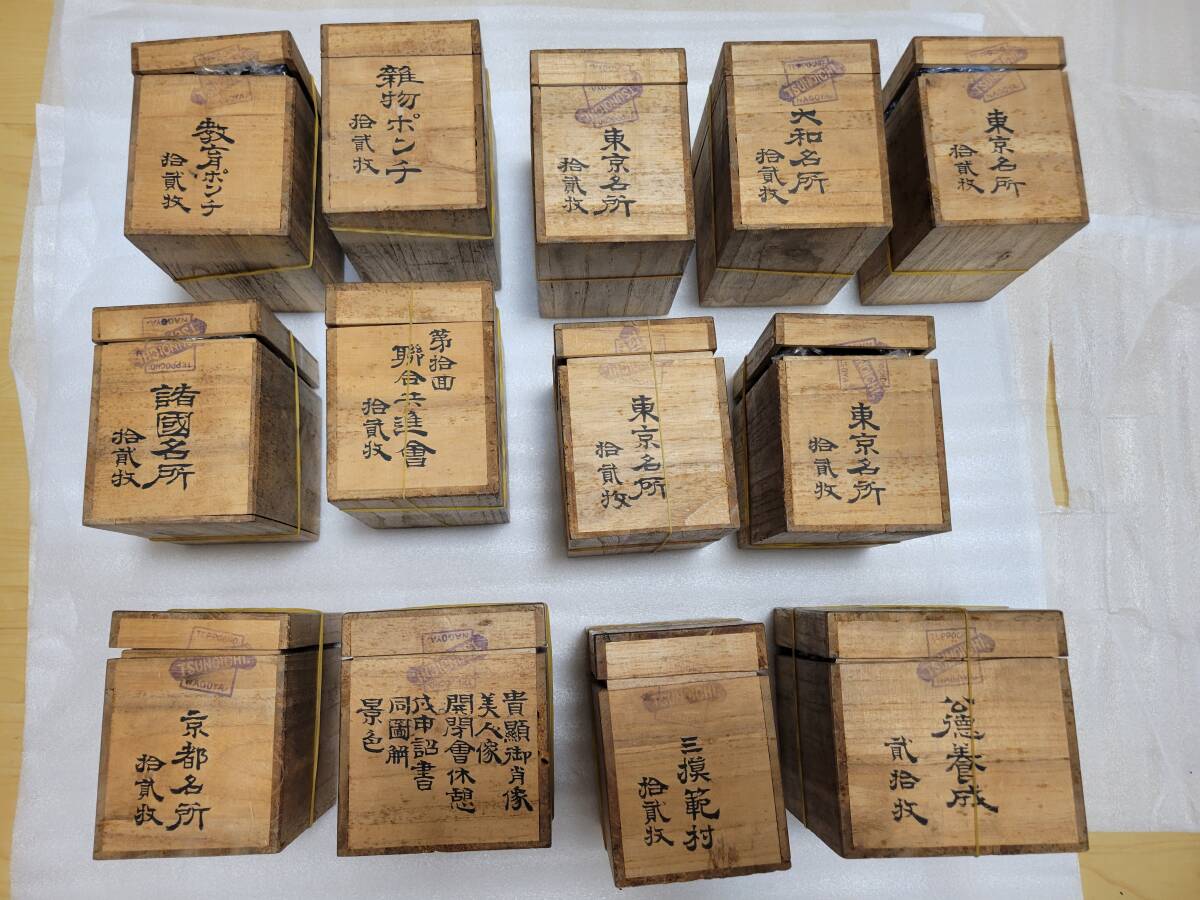 TSUNOICHI
NAGOYA
教育ポンチ
拾貳枚
雜物ポンチ
拾貳枚
TSUNOICHI
東京名所
拾貳枚
TEPPOCHO
TSUNOICHI
NAGOYA
大和名所
拾貳枚
TEPPOCHO
TSUNOICHI
NAGOYA
東京名所
拾貳枚
NAGOYA
TSUNOICHI
TEPPOCHO
諸國名所
拾貳枚
第拾回
聯合共進會
拾貳枚
東京名所
拾貳枚
東京名所
拾貳枚
TEPPOCHO
TSUNOICHI
NAGOYA
京都名所
拾貳枚
NAGOYA
TSUNOICHI
貴顯御肖像
美人像
開閉會休憩
戊申詔書
同圖解
景色
TSUNOICHI
三摸範村
拾貳枚
TEPPOCHO
TSUNOICHI
NAGOYA
公德養成
貳拾枚